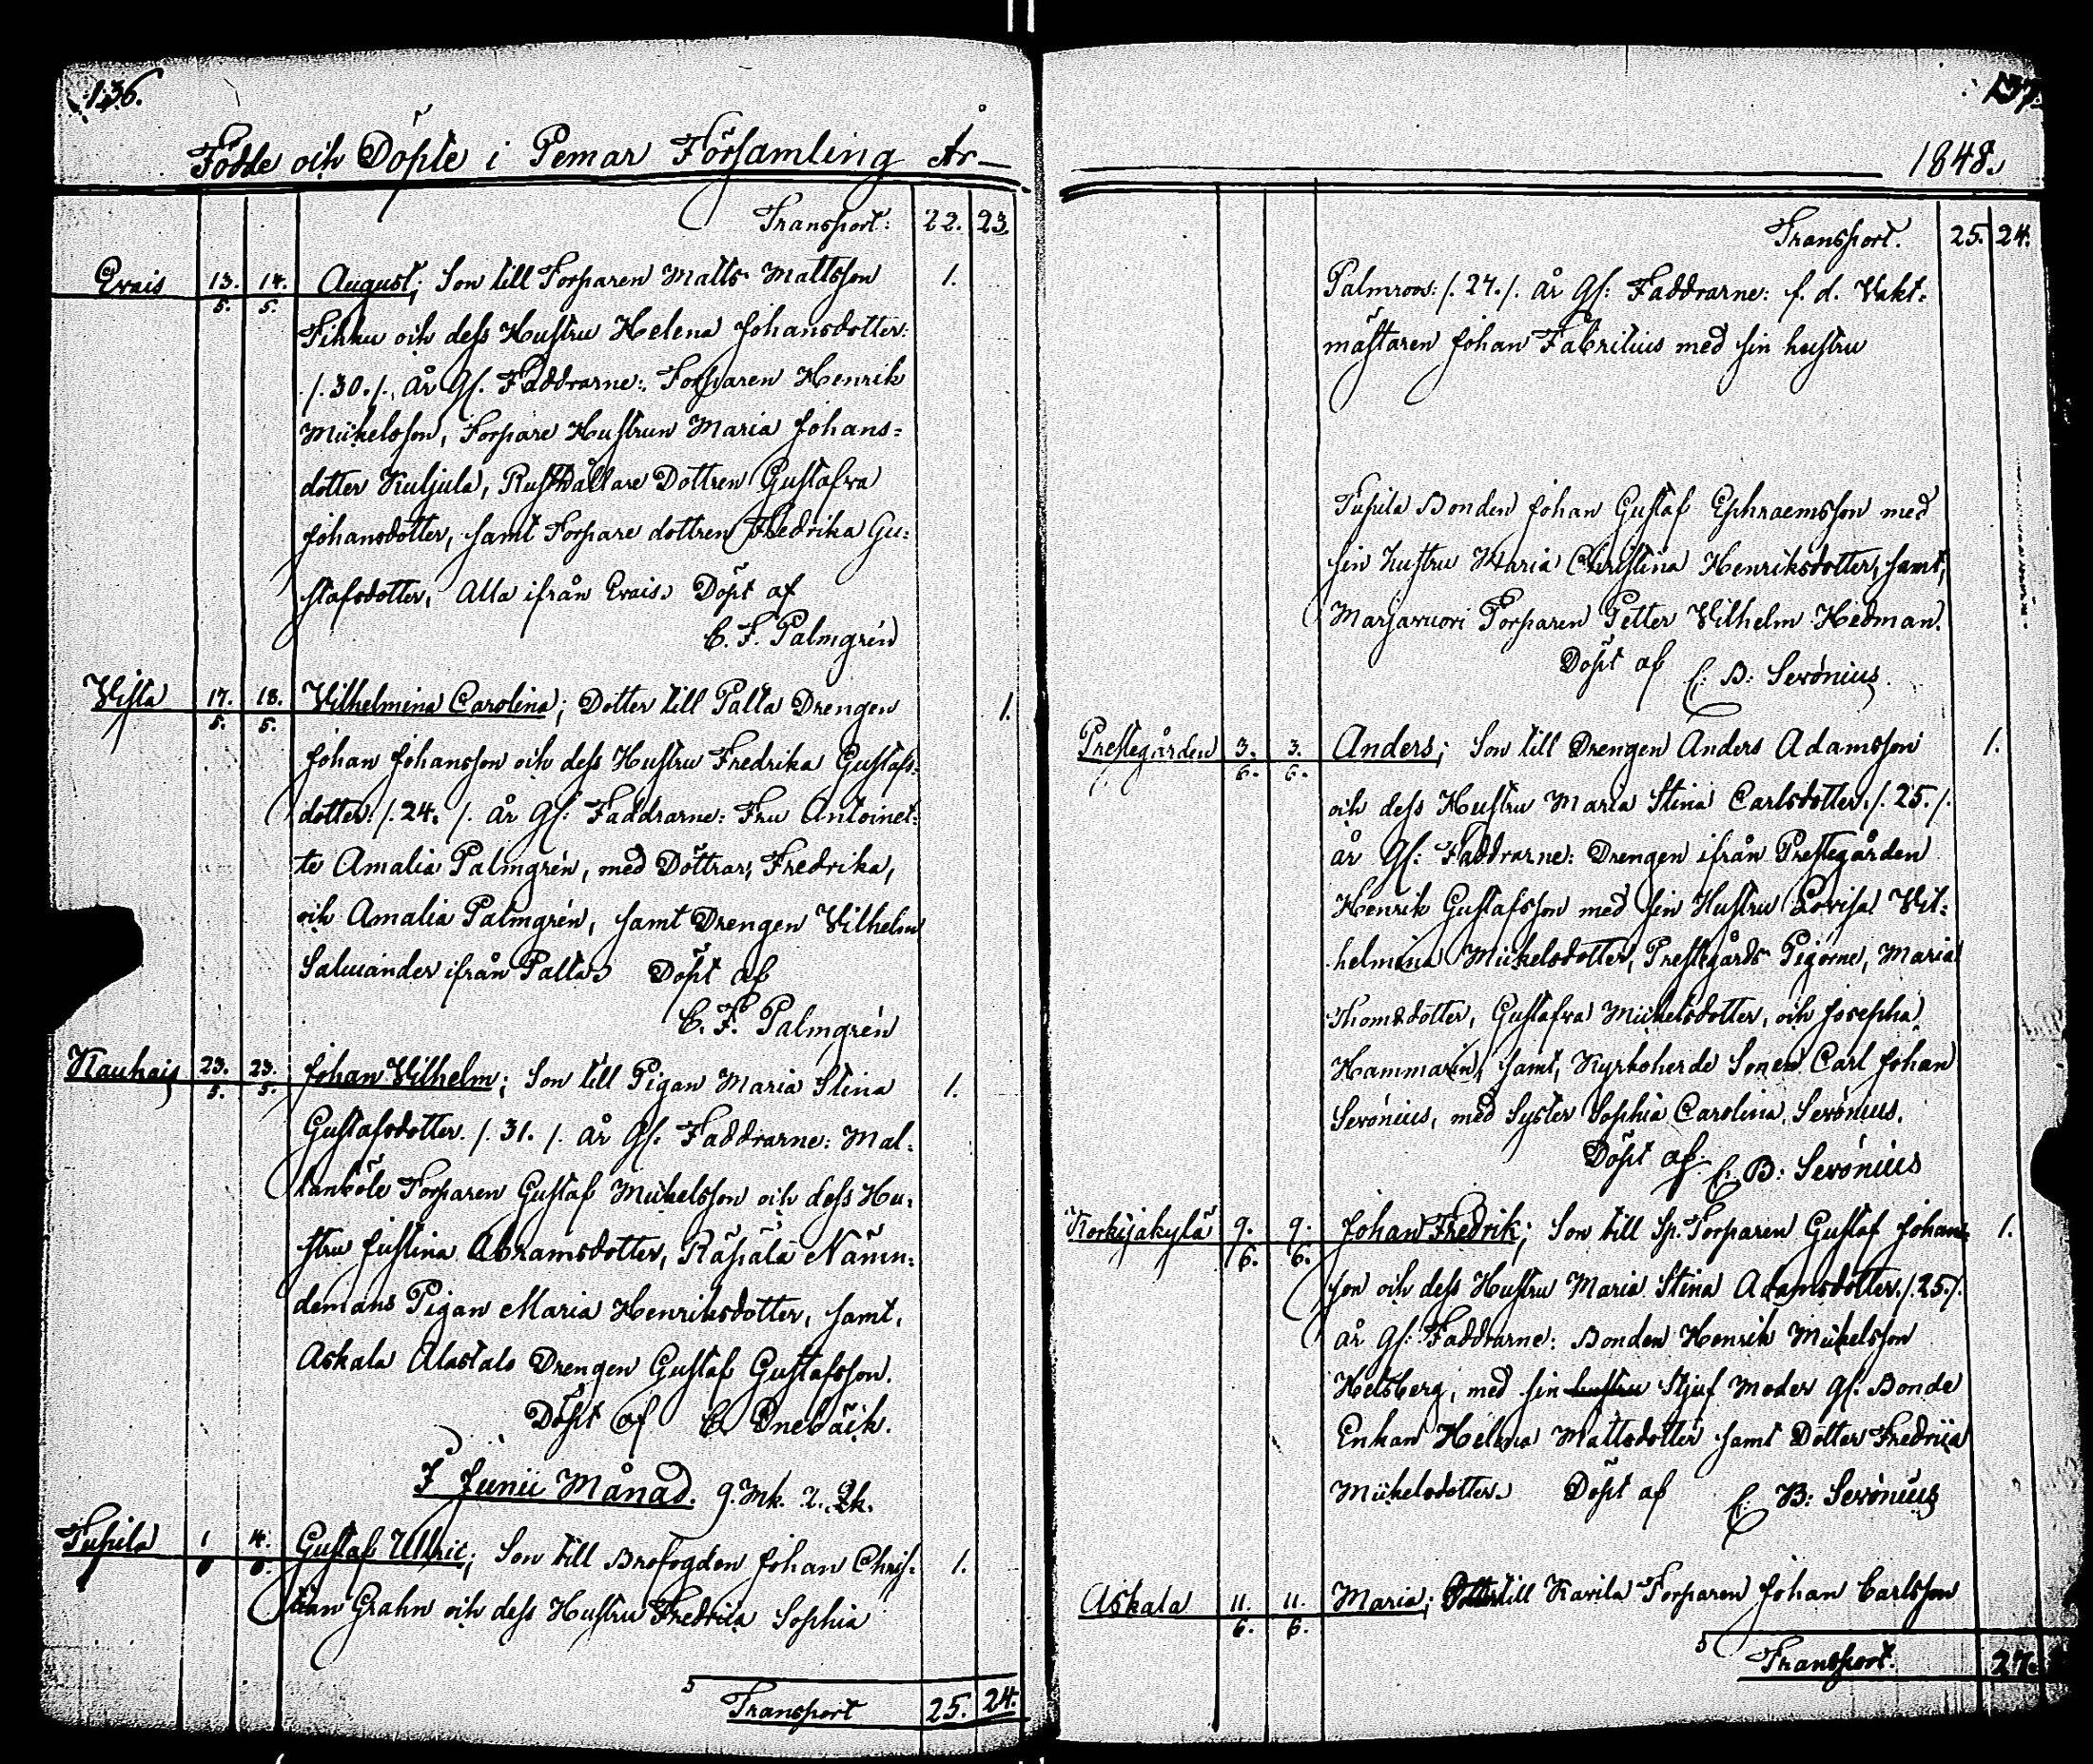 136.
Födde och Döpte i Pemar Församling År
Transport: 22. 23.
Evais 13. 14. August; Son till Torparen Matts Mattsson 1.
5. 5.
och dess Hustru Helena Johansdotter.
/. 30. /. år Gl. Faddrarne: Torparen Henrik
Mickelsson, Torpare Hustrun Maria Johans=
dotter Kuljula, Rusthållare Dottren Gustafva
Johansdotter, samt Torpare dottren Fredrika Gu=
stafsdotter, Alla ifrån Evais. Döpt af
C. F. Palmgrén
Vista 17. 18. Vilhelmina Carolina; Dotter till Palta Drengen 1.
5. 5.
Johan Johansson och dess Hustru Fredrika Gustafs=
dotter. /. 24. /. år Gl: Faddrarne: Fru Antoinet=
te Amalia Palmgrén, med Döttrar, Fredrika,
och Amalia Palmgrén, samt Drengen Vilhelm
Salmander ifrån Palta. Döpt af
C. F. Palmgrén
Nauhais 23. 23. Johan Vilhelm; Son till Pigan Maria Stina 1.
5. 5.
Gustafsdotter. /. 31. /. år Gl. Faddrarne: Mal=
tanböle Torparen Gustaf Mickelsson och dess Hu=
stru Justina Abramsdotter, Räpälä Nämn=
demans Pigan Maria Henriksdotter, samt,
Askala Alastalo Drengen Gustaf Gustafsson.
Döpt af C. Enebäck.
I Junii Månad. 9. Mk. 2. Qk.
Tupila 1 4. Gustaf Ullric; Son till Brofogden Johan Chris= 1.
6 6.
tian Grahn och dess Hustru Fredrica Sophia
5
Transport 25. 24.
137.
1848.
Transport. 25. 24.
Palmroos: /. 27. /. år Gl: Faddrarne: f. d. Vakt=
mästaren Johan Fabritius med sin hustru
Tupila Bonden Johan Gustaf Ephraemsson med
sin hustru Maria Christina Henriksdotter, samt,
Marjavuori Torparen Petter Vilhelm Hedman.
Döpt af C: B: Serónius.
Prestegården 3. 3. Anders; Son till Drengen Anders Adamsson 1.
6. 6.
och dess Hustru Maria Stina Carlsdotter. /. 25. /.
år Gl: Faddrarne: Drengen ifrån Prestegården
Henrik Gustafsson med sin Hustru Lovisa Vil=
helmina Mickelsdotter, Prestgårds Pigorne, Maria
Thomsdotter, Gustafva Mickelsdotter, och Josepha
Hammarin, samt, Kyrkoherde Sonen Carl Johan
Serónius, med Syster Sophia Carolina, Serónius.
Döpt af C: B: Serónius
Korkijakylä 9. 9. Johan Fredrik; Son till Sp. Torparen Gustaf Johans= 1.
6. 6.
son och dess Hustru Maria Stina Adamsdotter. /. 25. /.
år Gl: Faddrarne: Bonden Henrik Mickelsson
Helsberg, med sin hustru Stjuf Moder Gl: Bonde
Enkan Helena Mattsdotter samt Dotter Fredrica
Mickelsdotter. Döpt af C: B: Serónius
Askala 11. 11. Maria; Dotter till Karila Torparen Johan Carlsson
6. 6.
5
Transport. 27.